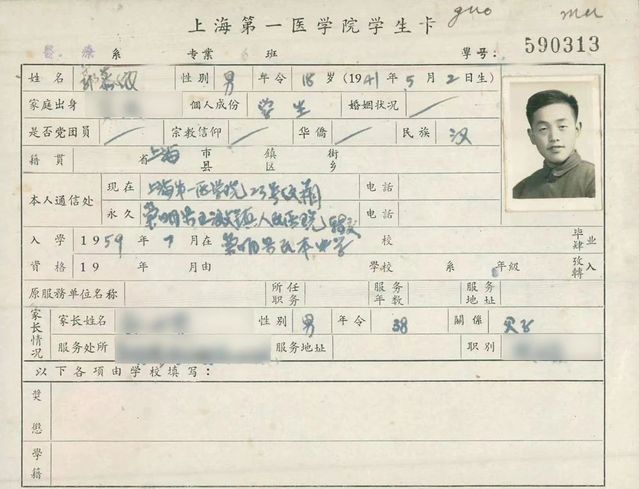 上海第一医学院学生卡 guo mei
医 疗 系 专业 6 班 学号: 590313
姓名 郭 性别 男 年令 18 岁 (1941 年 5 月 2 日生)
家庭出身 個人成份 学生 婚姻状况 /
是否党团員 / 宗教信仰 / 华僑 / 民族 汉
籍貫 省 上海 市县 鎮区 街乡
本人通信处 现在 上海第一医学院 23号 电話
永久 人民医院 电話
入学 1959 年 7 月在 中学 校 毕肄 业
資格 19 年 月由 学校 系 年級 攷轉 入
原服務单位名称 所任职务 服务年数 服务地址
家长情况 家长姓名 性别 男 年令 38 關係 父子
服务处所 服务地址 职别
以下各項由学校填写:
奬懲
学籍